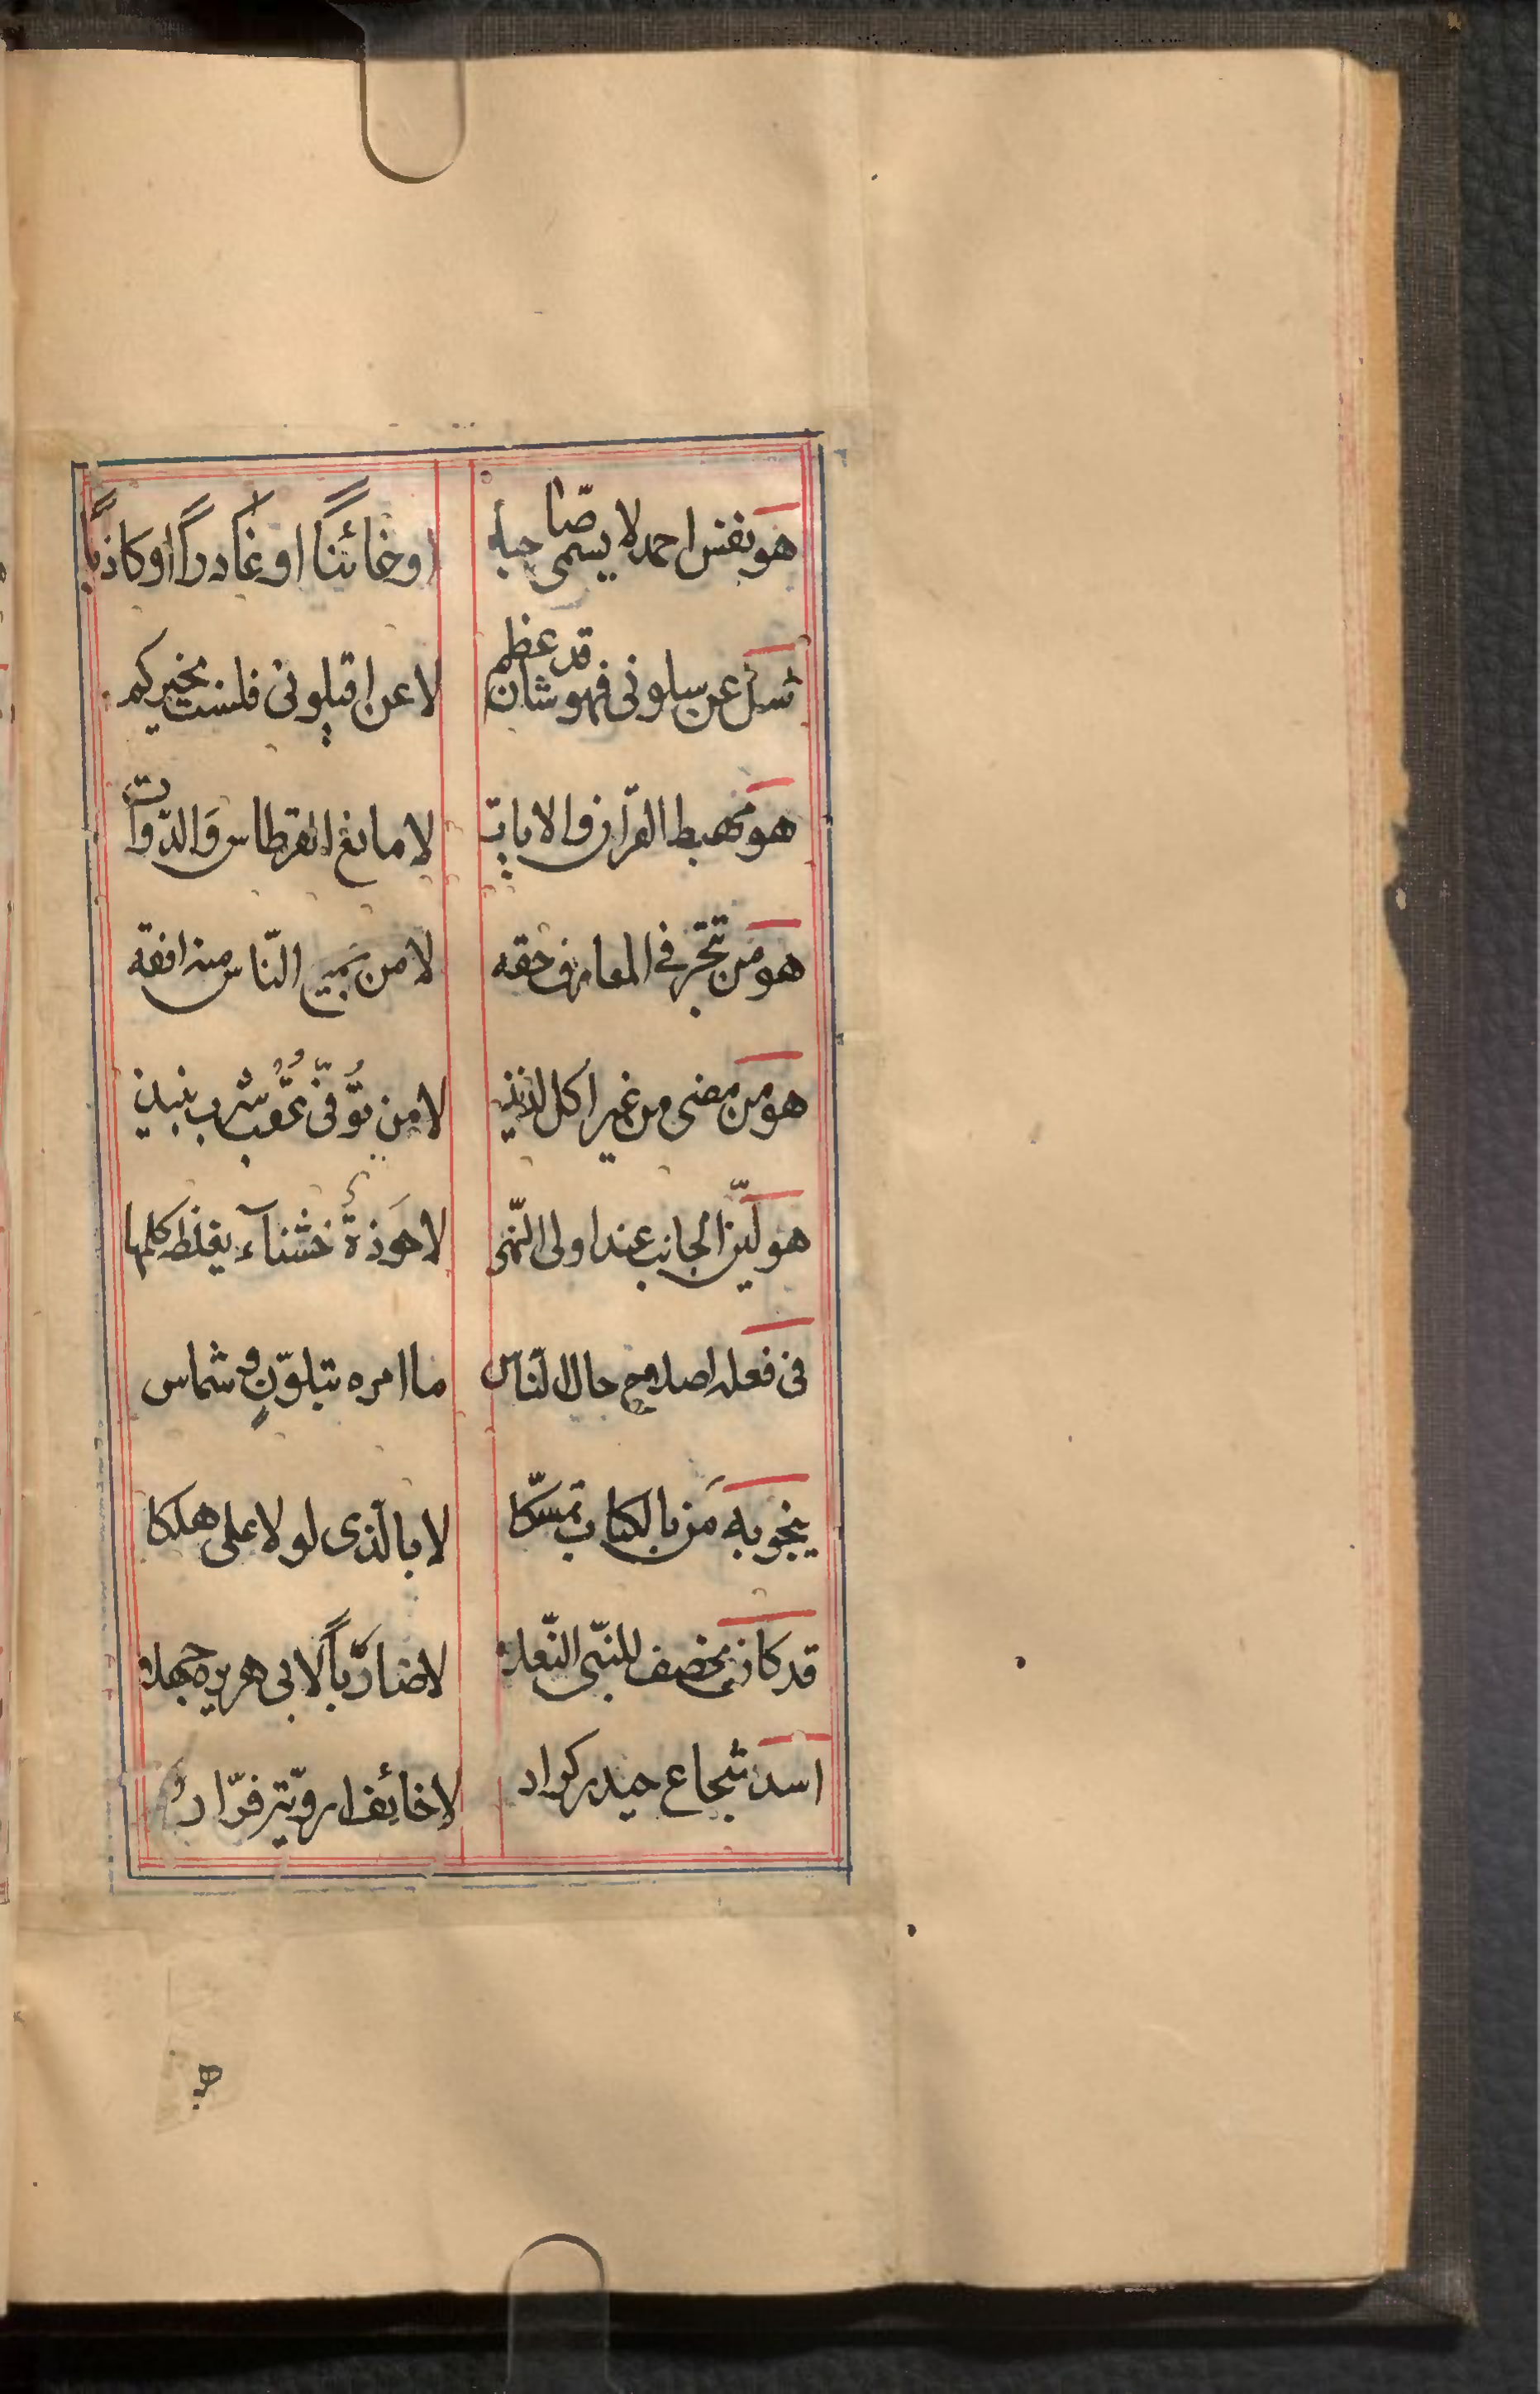 هو نفس احمد لا يسمى صاحبا
اوخائنًا او غادرًا او كاذبًا
سل عن سلونى فهو شان قد عظم
لا عن اقيلونى فلست بخيركم
هو مهبط القرآن والايات
لا مانع القرطاس وَالدّوات
هو من تبحّر فى المعارف حقه
لا من جميع النّاس منه افقه
هو من مضى من غير اكل لذيذ
لا من توُفّى عقب شرب نبيذ
هو ليّن الجانب عند اولى النّهى
لا حَوذةٌ خشنآء يغلظ كلمها
فى فعله اصلاح حال النّاس
ما امره بتلوّنٍ و شماس
ينجو به مَن بالكتاب تمسّكا
لا بالّذى لولا على هلكا
قد كان يخصف للنبّى النّعله
لا ضاربًا لابى هريره جهله
اسد شجاع حيدر كرار
لا خائف فرّار